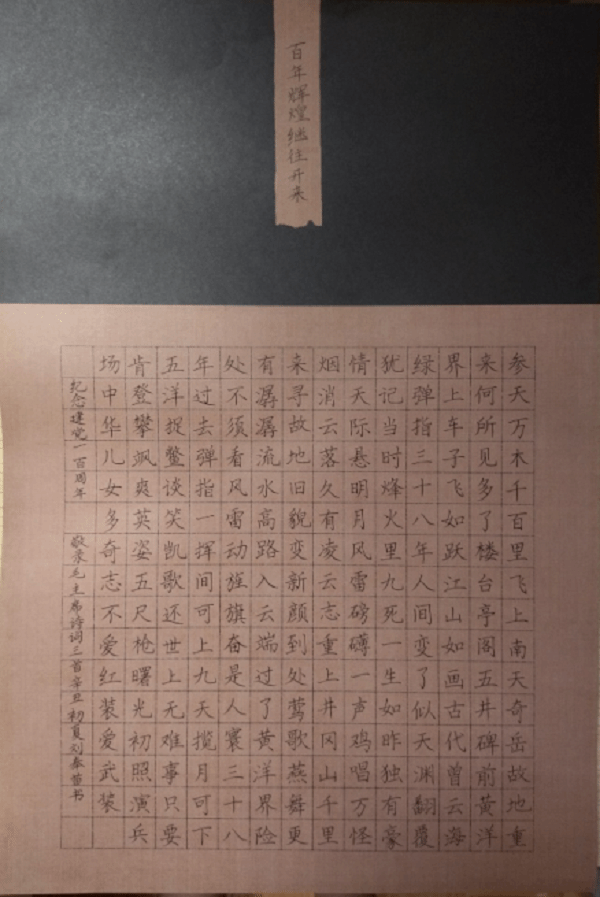 百年辉煌继往开来
参天万木千百里飞上南天奇岳故地重
来何所见多了楼台亭阁五井碑前黄洋
界上车子飞如跃江山如画古代曾云海
绿弹指三十八年人间变了似天渊翻覆
犹记当时烽火里九死一生如昨独有豪
情天际悬明月风雷磅礴一声鸡唱万怪
烟消云落久有凌云志重上井冈山千里
来寻故地旧貌变新颜到处莺歌燕舞更
有潺潺流水高路入云端过了黄洋界险
处不须看风雷动旌旗奋是人寰三十八
年过去弹指一挥间可上九天揽月可下
五洋捉鳖谈笑凯歌还世上无难事只要
肯登攀飒爽英姿五尺枪曙光初照演兵
场中华儿女多奇志不爱红装爱武装
纪念建党一百周年 敬录毛主席诗词三首辛丑初夏刘苗书